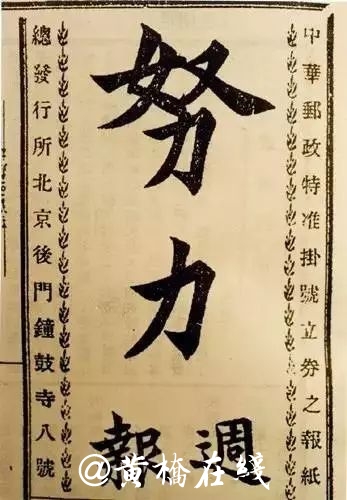 中華郵政特准掛號立券之報紙
努力
週報
總發行所北京後門鐘鼓寺八號
@黄橋在綫